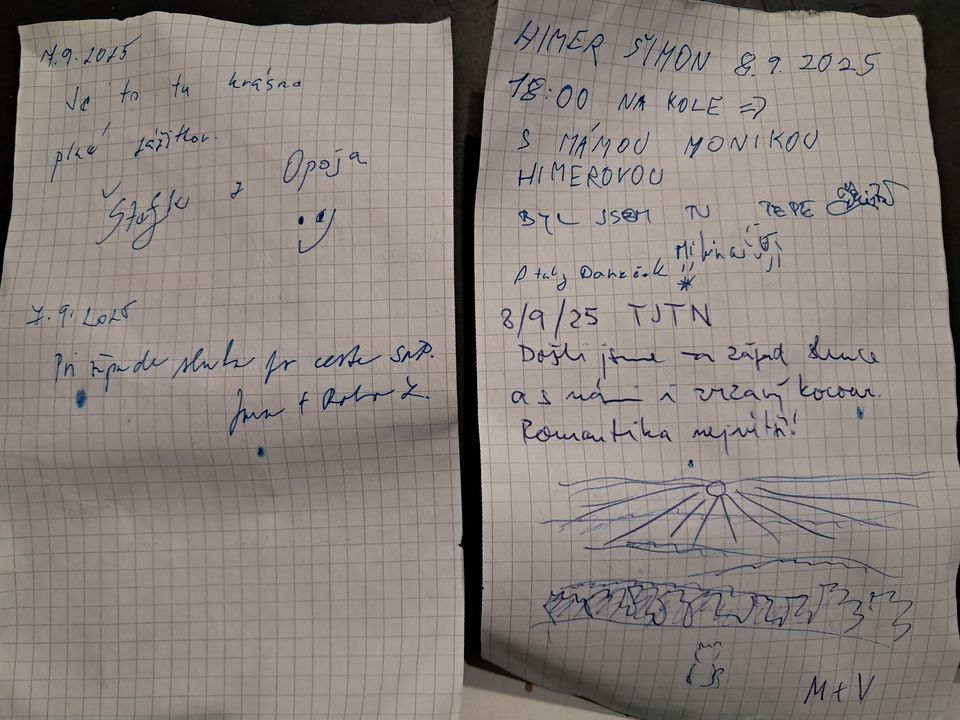 7.9.2025
Je to tu krásna
plná zážitkov.
z Opoja
7.9.2025
Pri západe slnka po ceste SNP.
+
HIMER ŠIMON 8.9.2025
18:00 NA KOLE =>
S MÁMOU MONIKOU
HIMEROVOU
BYL JSEM TU
8/9/25 TJTN
Došli jsme na západ slunce
a s námi i vrzavý kocour.
Romantika největší!
M+V